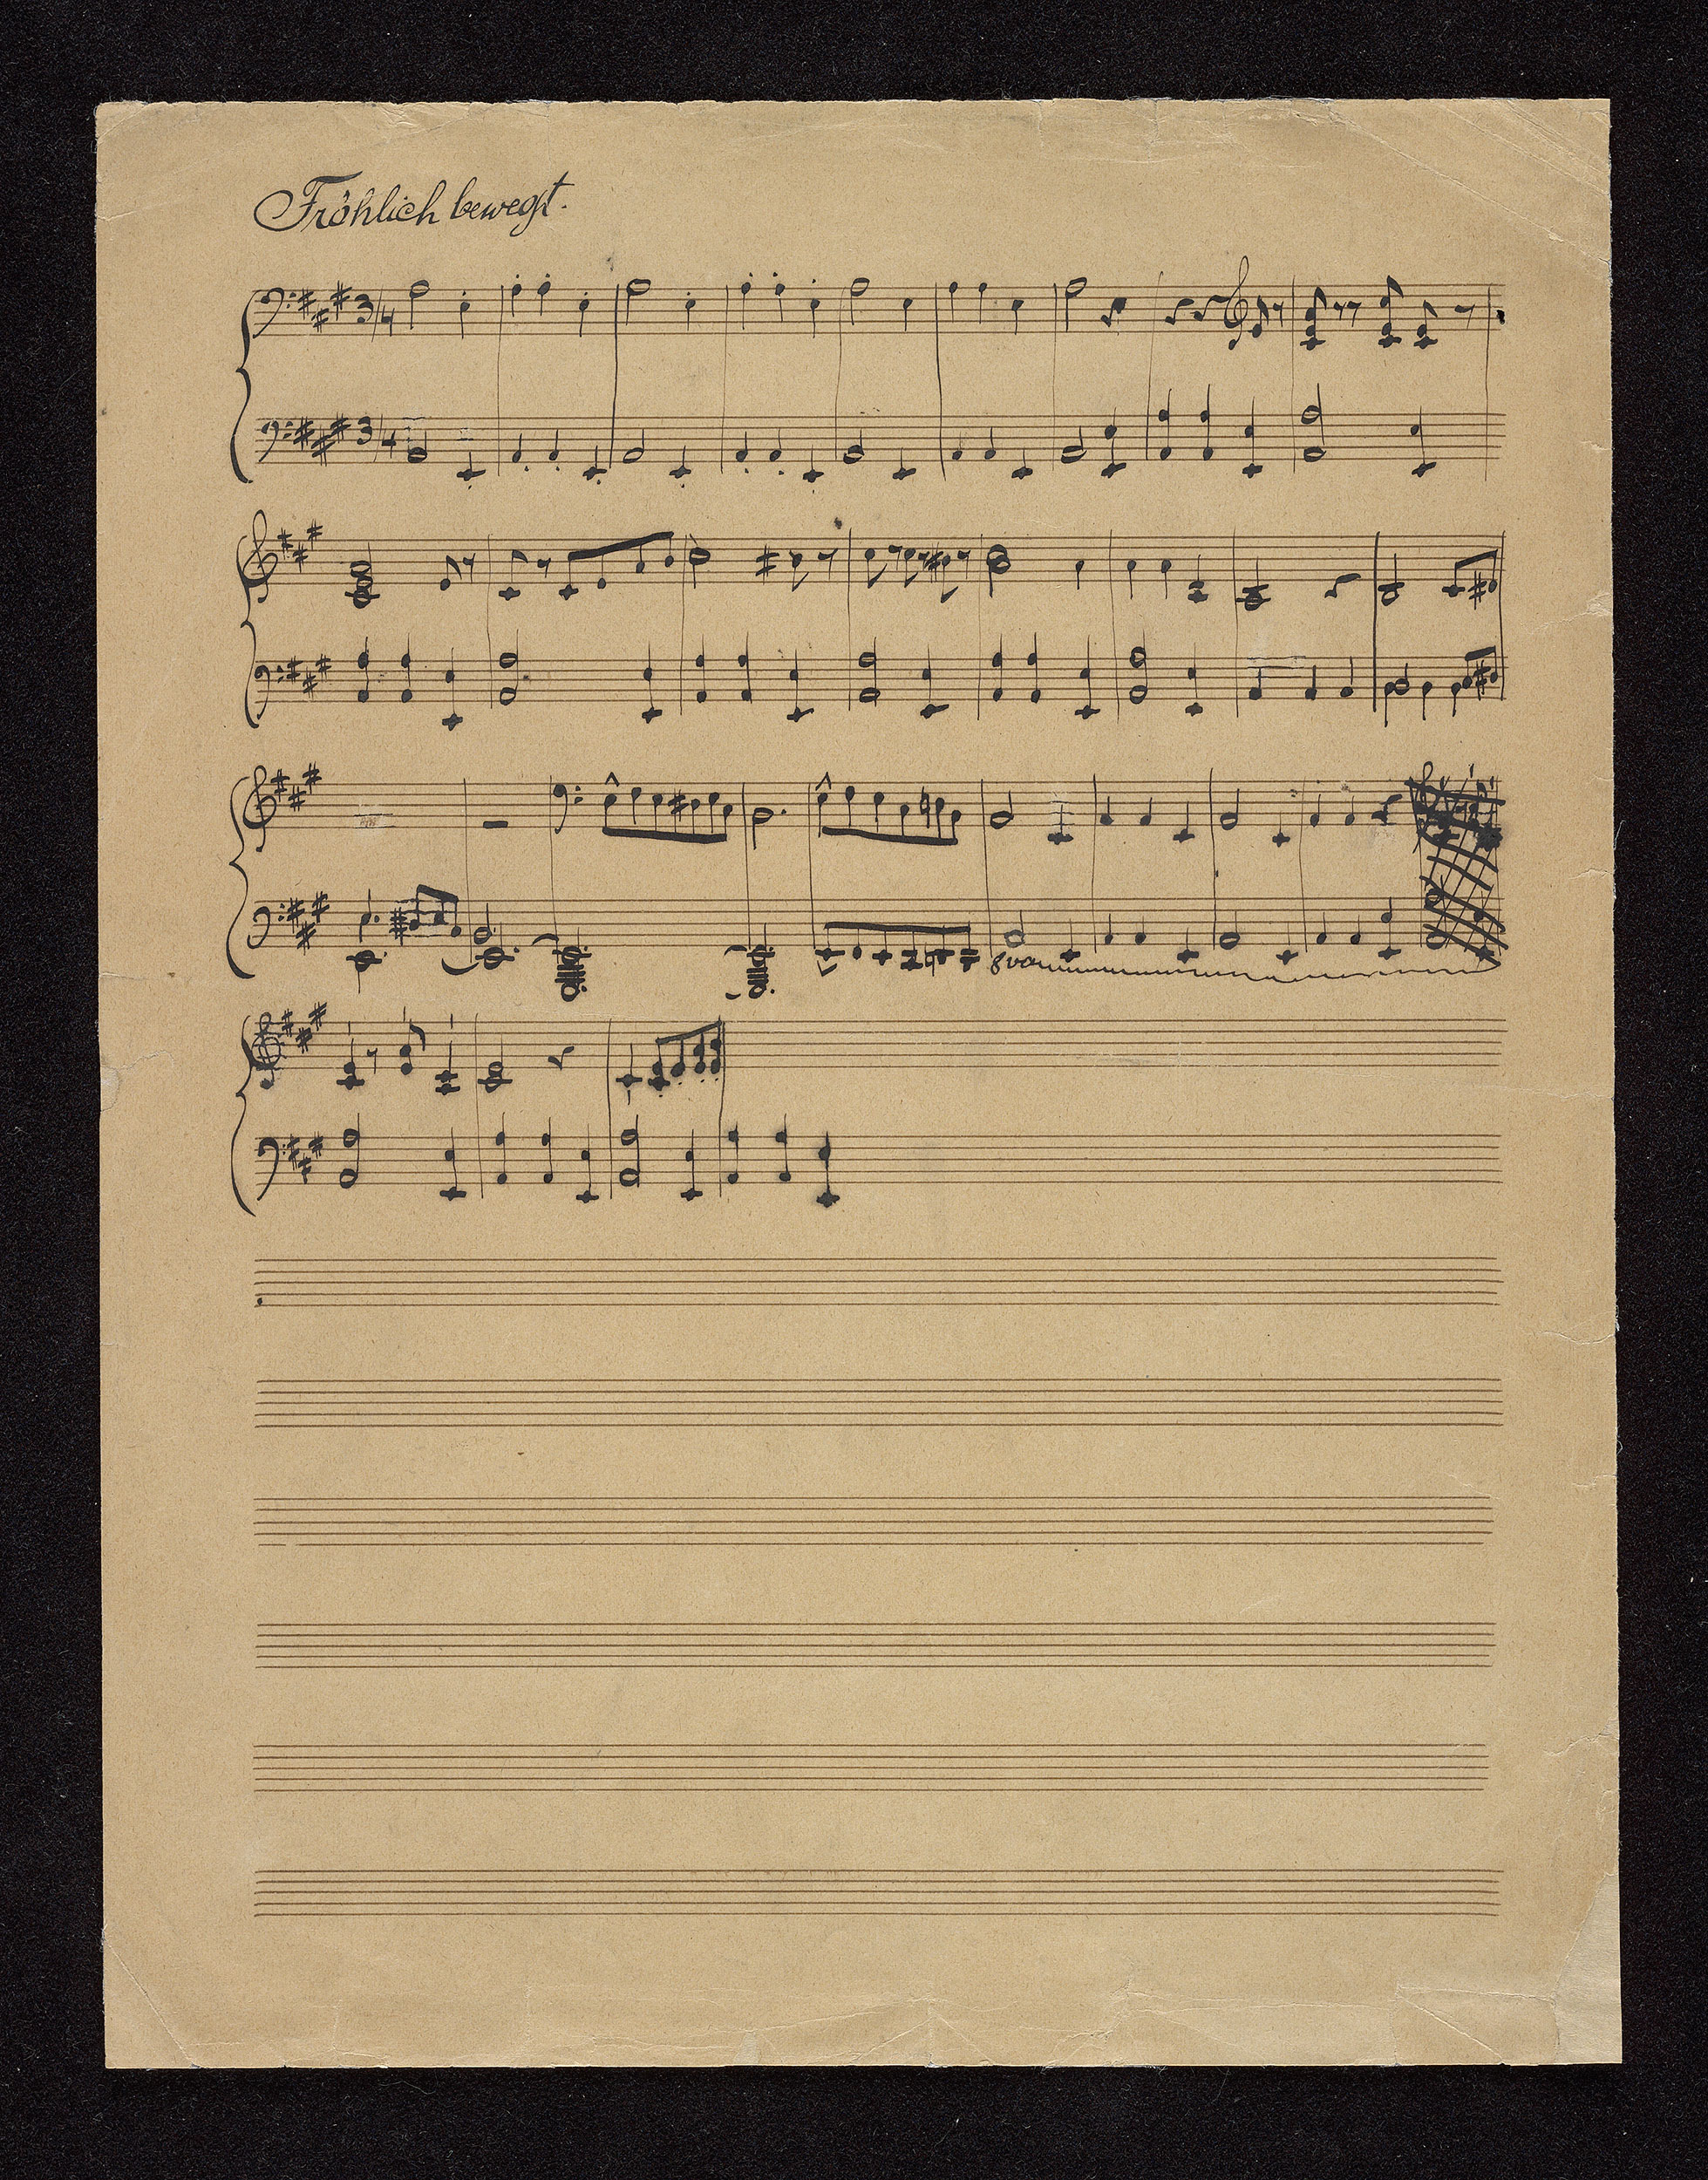 Fröhlich bewegt.
3/4
3/4
8va